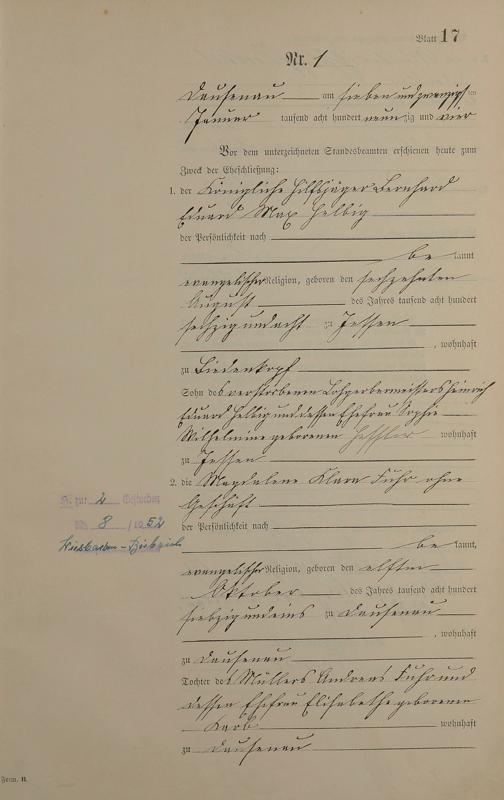 Blatt 17
Nr. 1
Dausenau am sieben und zwanzigsten
Januar tausend acht hundert neunzig und vier
Vor dem unterzeichneten Standesbeamten erschienen heute zum
Zweck der Eheschließung:
1. der Königliche Hilfsjäger Bernhard
Eduard Max Helbig
der Persönlichkeit nach
be kannt,
evangelischer Religion, geboren den sechzehnten
August des Jahres tausend acht hundert
sechzig und acht zu Jessen
, wohnhaft
zu Biedenkopf
Sohn des verstorbenen Lohgerbermeisters Heinrich
Eduard Helbig und dessen Ehefrau Sophie
Wilhelmine geborenen wohnhaft
zu Jessen
2. die Magdalene Klara Fuhr ohne
Geschäft
der Persönlichkeit nach
be kannt,
evangelischer Religion, geboren den elften
Oktober des Jahres tausend acht hundert
siebzig und eins zu Dausenau
, wohnhaft
zu Dausenau
Tochter des Müllers Andreas Fuhr und
dessen Ehefrau Elisabethe geborenen
wohnhaft
zu Dausenau
zu: 2 Gestorben
Nr. 8 /1952
Wiesbaden-Biebrich
Form. B.